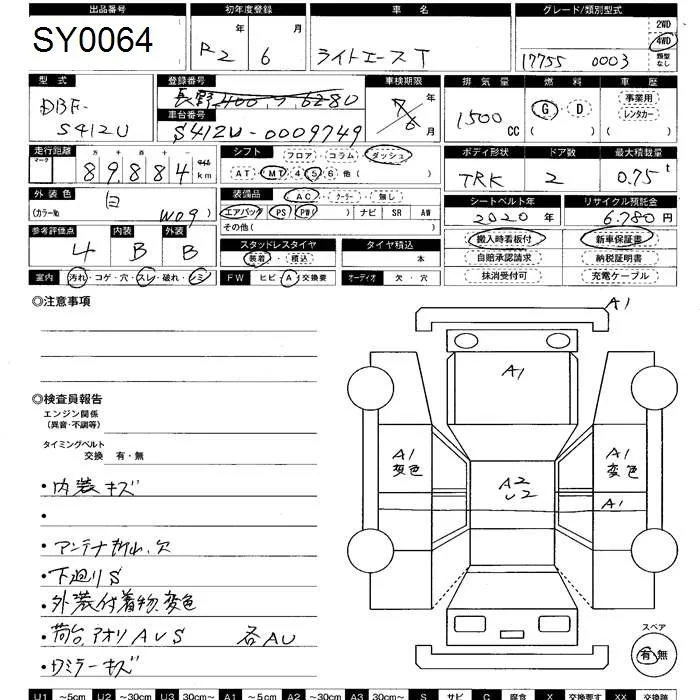 出品番号 初年度登録 車名 グレード/類別型式
SY0064 R2 年 6 月 ライトエースT 17755 0003 2WD 4WD 類型なし
型式 登録番号 車検期限 排気量 燃料 車歴
DBF-S412U 長野400 6280 年 月 1500 CC G・D 事業用 レンタカー
車台番号 S412U-0009749
走行距離 シフト フロア・コラム・ダッシュ ボディ形状 ドア数 最大積載量
マーク 十 万 千 百 十 一 マイル km
89,884 AT・MT・4・5・6 他( ) TRK 2 0.75 t
外装色 装備品 AC・クーラー・無し シートベルト年 リサイクル預託金
(カラーNo. W09) 白 エアバッグ・PS・PW( ) ナビ SR AW 2020年 6,780円
その他( )
参考評価点 内装 外装 スタッドレスタイヤ タイヤ積込 搬入時看板付 新車保証書
4 B B 装着・積込 本 自賠承認請求 納税証明書
室内 汚れ・コゲ・穴・スレ・破れ・シミ FW ヒビ・A・交換要 オーディオ 欠・穴 抹消受付可 充電ケーブル
◎注意事項
A1
A1
◎検査員報告
エンジン関係
(異音・不調等)
タイミングベルト
交換 有・無
A1 変色
A2 U2
A1 変色
A1
・内装キズ
・
・アンテナ 欠
・下廻りS
・外装付着物、変色
・荷台、アオリAUS 各AU
・ワミラーキズ
スペア
有 無
U1 ~5cm U2 ~30cm U3 30cm~ A1 ~5cm A2 ~30cm A3 30cm~ S サビ C 腐食 X 交換要す XX 交換跡